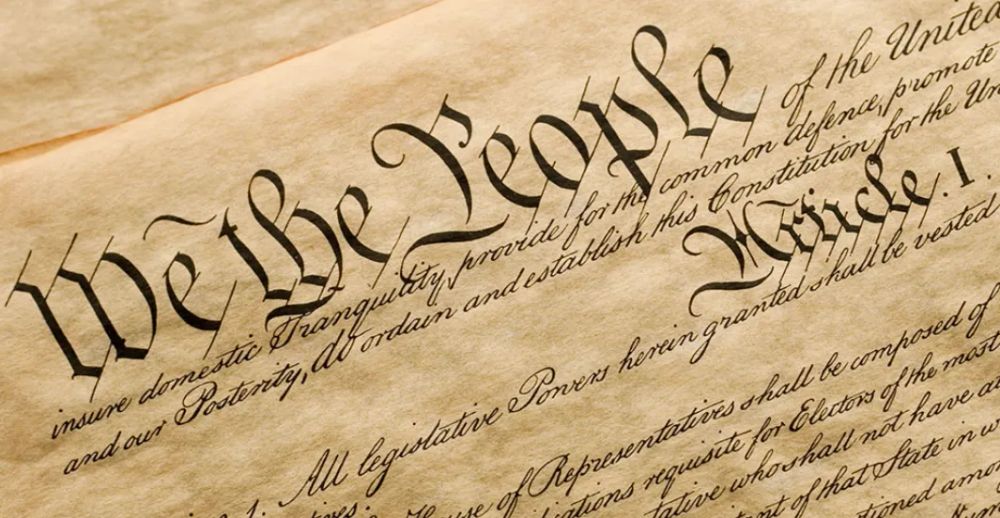 We the People of the United
insure domestic Tranquility, provide for the common defence, promote
and our Posterity, do ordain and establish this Constitution for the Un
Article. I.
1. All legislative Powers herein granted shall be vested
of Representatives shall be composed of
requisite for Electors of the most
who shall not have
of that State in